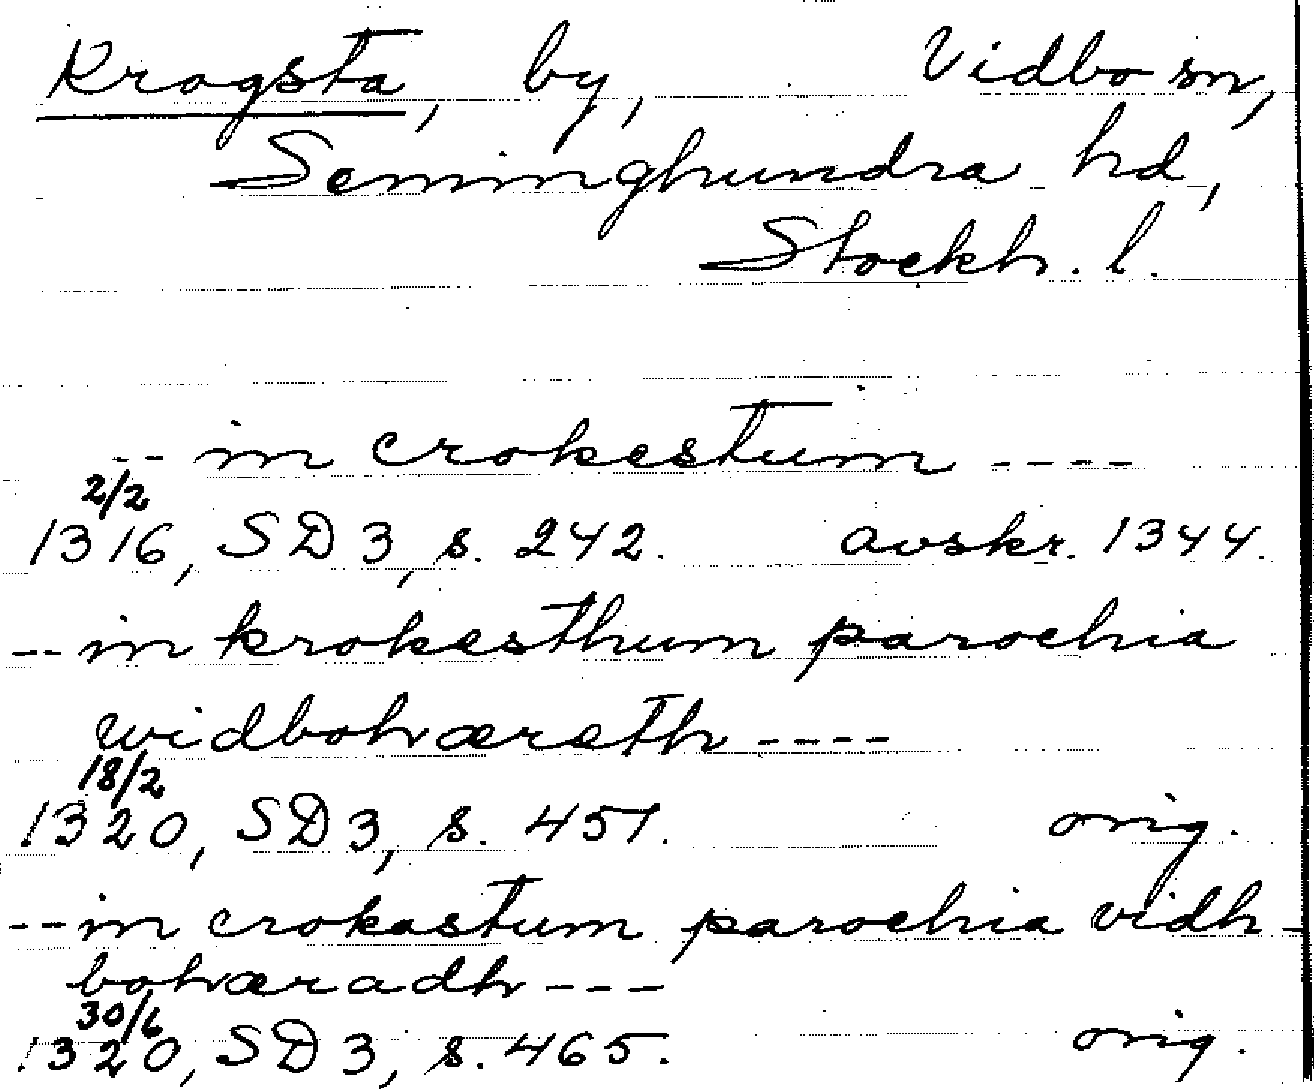 Krogsta, by, Vidbo sn,
Seminghundra hd,
Stockh. l.
-- in crokestum ----
2/2
1316, SD 3, s. 242. avskr. 1344.
-- in krokesthum parochia
widbohæreth ----
18/2
1320, SD 3, s. 451. orig.
-- in crokastum parochia vidh-
bohæradh ---
30/6
1320, SD 3, s. 465. orig.